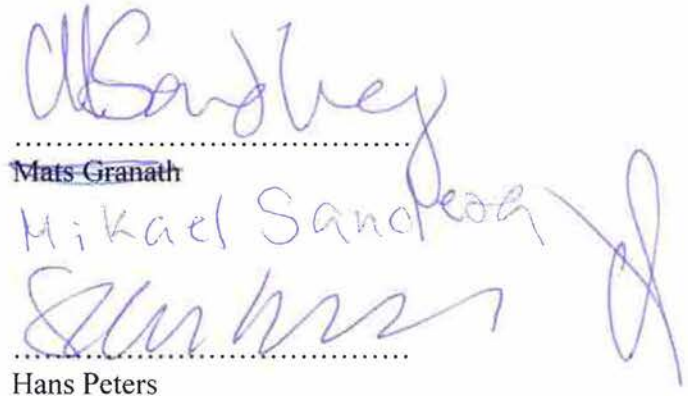 MSandberg
....................................................
~~Mats Granath~~
Mikael Sandberg
....................................................
Hans Peters